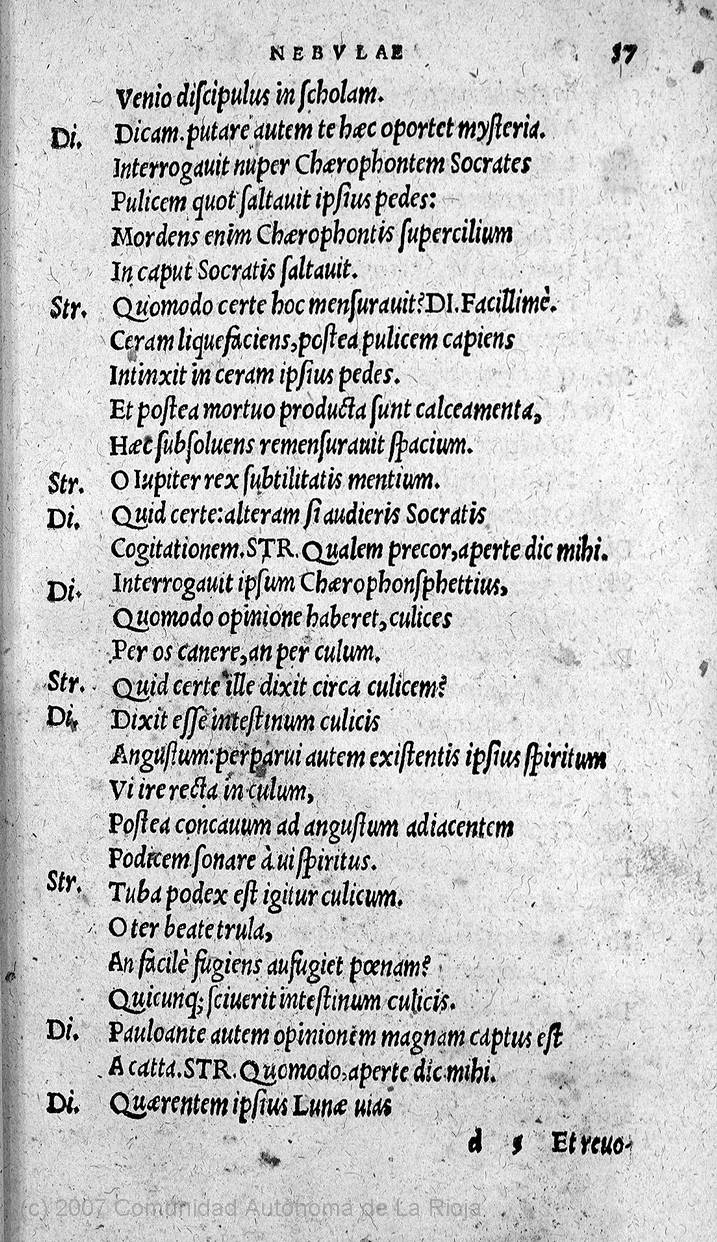 NEBVLAE 57
Venio diſcipulus in ſcholam.
Di. Dicam. putare autem te hæc oportet myſteria.
Interrogauit nuper Chærophontem Socrates
Pulicem quot ſaltauit ipſius pedes:
Mordens enim Chærophontis ſupercilium
In caput Socratis ſaltauit.
Str. Quomodo certe hoc menſurauit? DI. Facillimè.
Ceram liquefaciens, poſtea pulicem capiens
Intinxit in ceram ipſius pedes.
Et poſtea mortuo producta ſunt calceamenta,
Hæc ſubſoluens remenſurauit ſpacium.
Str. O Iupiter rex ſubtilitatis mentium.
Di. Quid certe: alteram ſi audieris Socratis
Cogitationem. STR. Qualem precor, aperte dic mihi.
Di. Interrogauit ipſum Chærophonſphettius,
Quomodo opinione haberet, culices
Per os canere, an per culum.
Str. Quid certe ille dixit circa culicem?
Di. Dixit eſſe inteſtinum culicis
Anguſtum: perparui autem exiſtentis ipſius ſpiritum
Vi ire recta in culum,
Poſtea concauum ad anguſtum adiacentem
Podicem ſonare à ui ſpiritus.
Str. Tuba podex eſt igitur culicum.
O ter beate trula,
An facilè fugiens aufugiet pœnam?
Quicunq; ſciuerit inteſtinum culicis.
Di. Pauloante autem opinionem magnam captus eſt
A catta. STR. Quomodo, aperte dic mihi.
Di. Quærentem ipſius Lunæ uias
d 5 Et reuo-
(c) 2007 Comunidad Autónoma de La Rioja